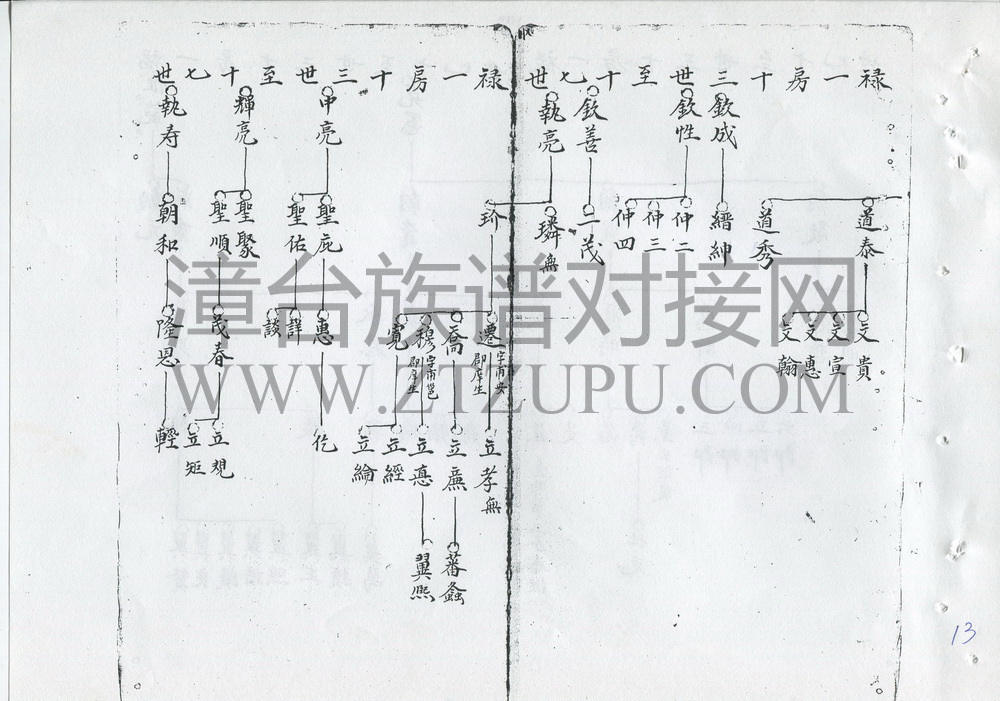 禄一房十三世至十七世
欽成
欽性
欽善
執亮
道泰
道秀
縉紳
仲二
仲三
仲四
二茂
璘無
玠
文貴
文宣
文惠
文翰
遷字甫安郡庠生
喬
穆字甫邕郡庠生
寬
立孝無
立廉
立意
立經
立綸
蕃螽
翼熙
禄一房十三世至十七世
申亮
輝亮
執寿
聖庇
聖佑
聖聚
聖順
朝和
惠
詳
談
茂春
隆恩
仡
立規
立矩
輕
漳台族谱对接网
WWW.ZTZUPU.COM
13